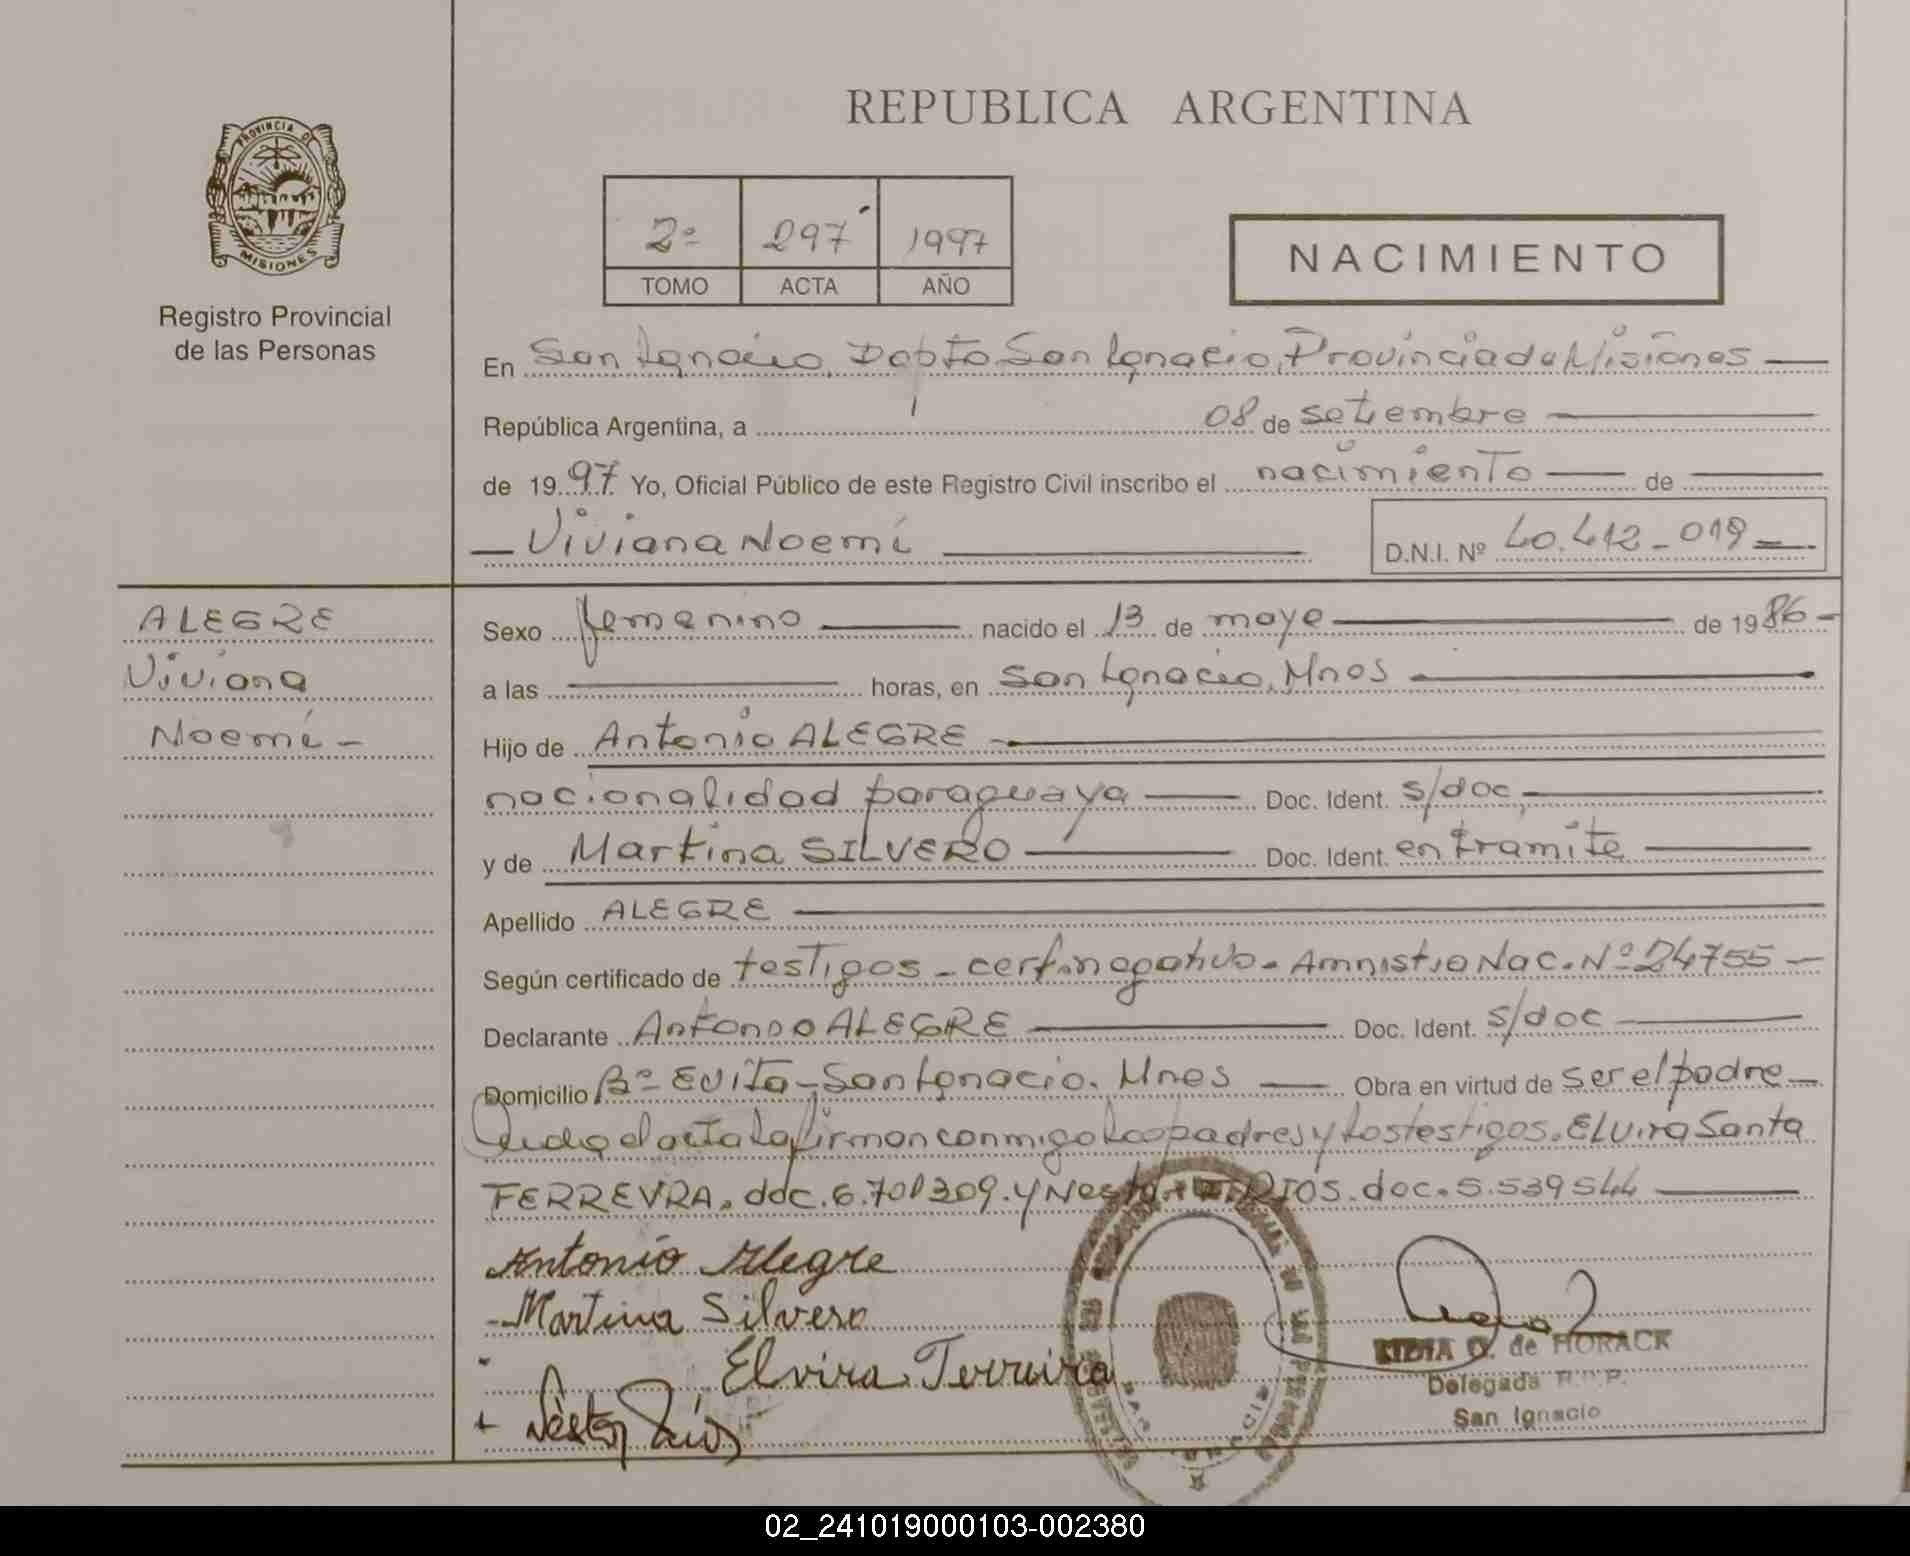 REPUBLICA ARGENTINA
PROVINCIA DE
MISIONES
Registro Provincial
de las Personas
2º 297 1997
TOMO ACTA AÑO
NACIMIENTO
En San Ignacio, Dapto San Ignacio, Provincia de Misiones
República Argentina, a 08 de setiembre
de 1997 Yo, Oficial Público de este Registro Civil inscribo el nacimiento de
Viviana Noemí D.N.I. Nº 40.412-019
ALEGRE
Viviana
Noemí -
Sexo femenino nacido el 13 de mayo de 1986-
a las horas, en San Ignacio, Mnes
Hijo de Antonio ALEGRE
nacionalidad paraguaya Doc. Ident. s/doc,
y de Martina SILVERO Doc. Ident. en tramite
Apellido ALEGRE
Según certificado de testigos - cert. negativo - Amnistia Nac. Nº 24755 -
Declarante Antonio ALEGRE Doc. Ident. s/doc
Domicilio Bº Evita - San Ignacio. Mnes Obra en virtud de ser el padre
el acta la firman conmigo los padres y los testigos. Elvira Santa
FERREYRA. doc. 6.701309. y RIOS. doc. 5.539544
Antonio Alegre
-Martina Silvero
Elvira Ferreira
+ Néstor Ríos
de HORACK
Delegada R.P.P.
San Ignacio
02_241019000103-002380